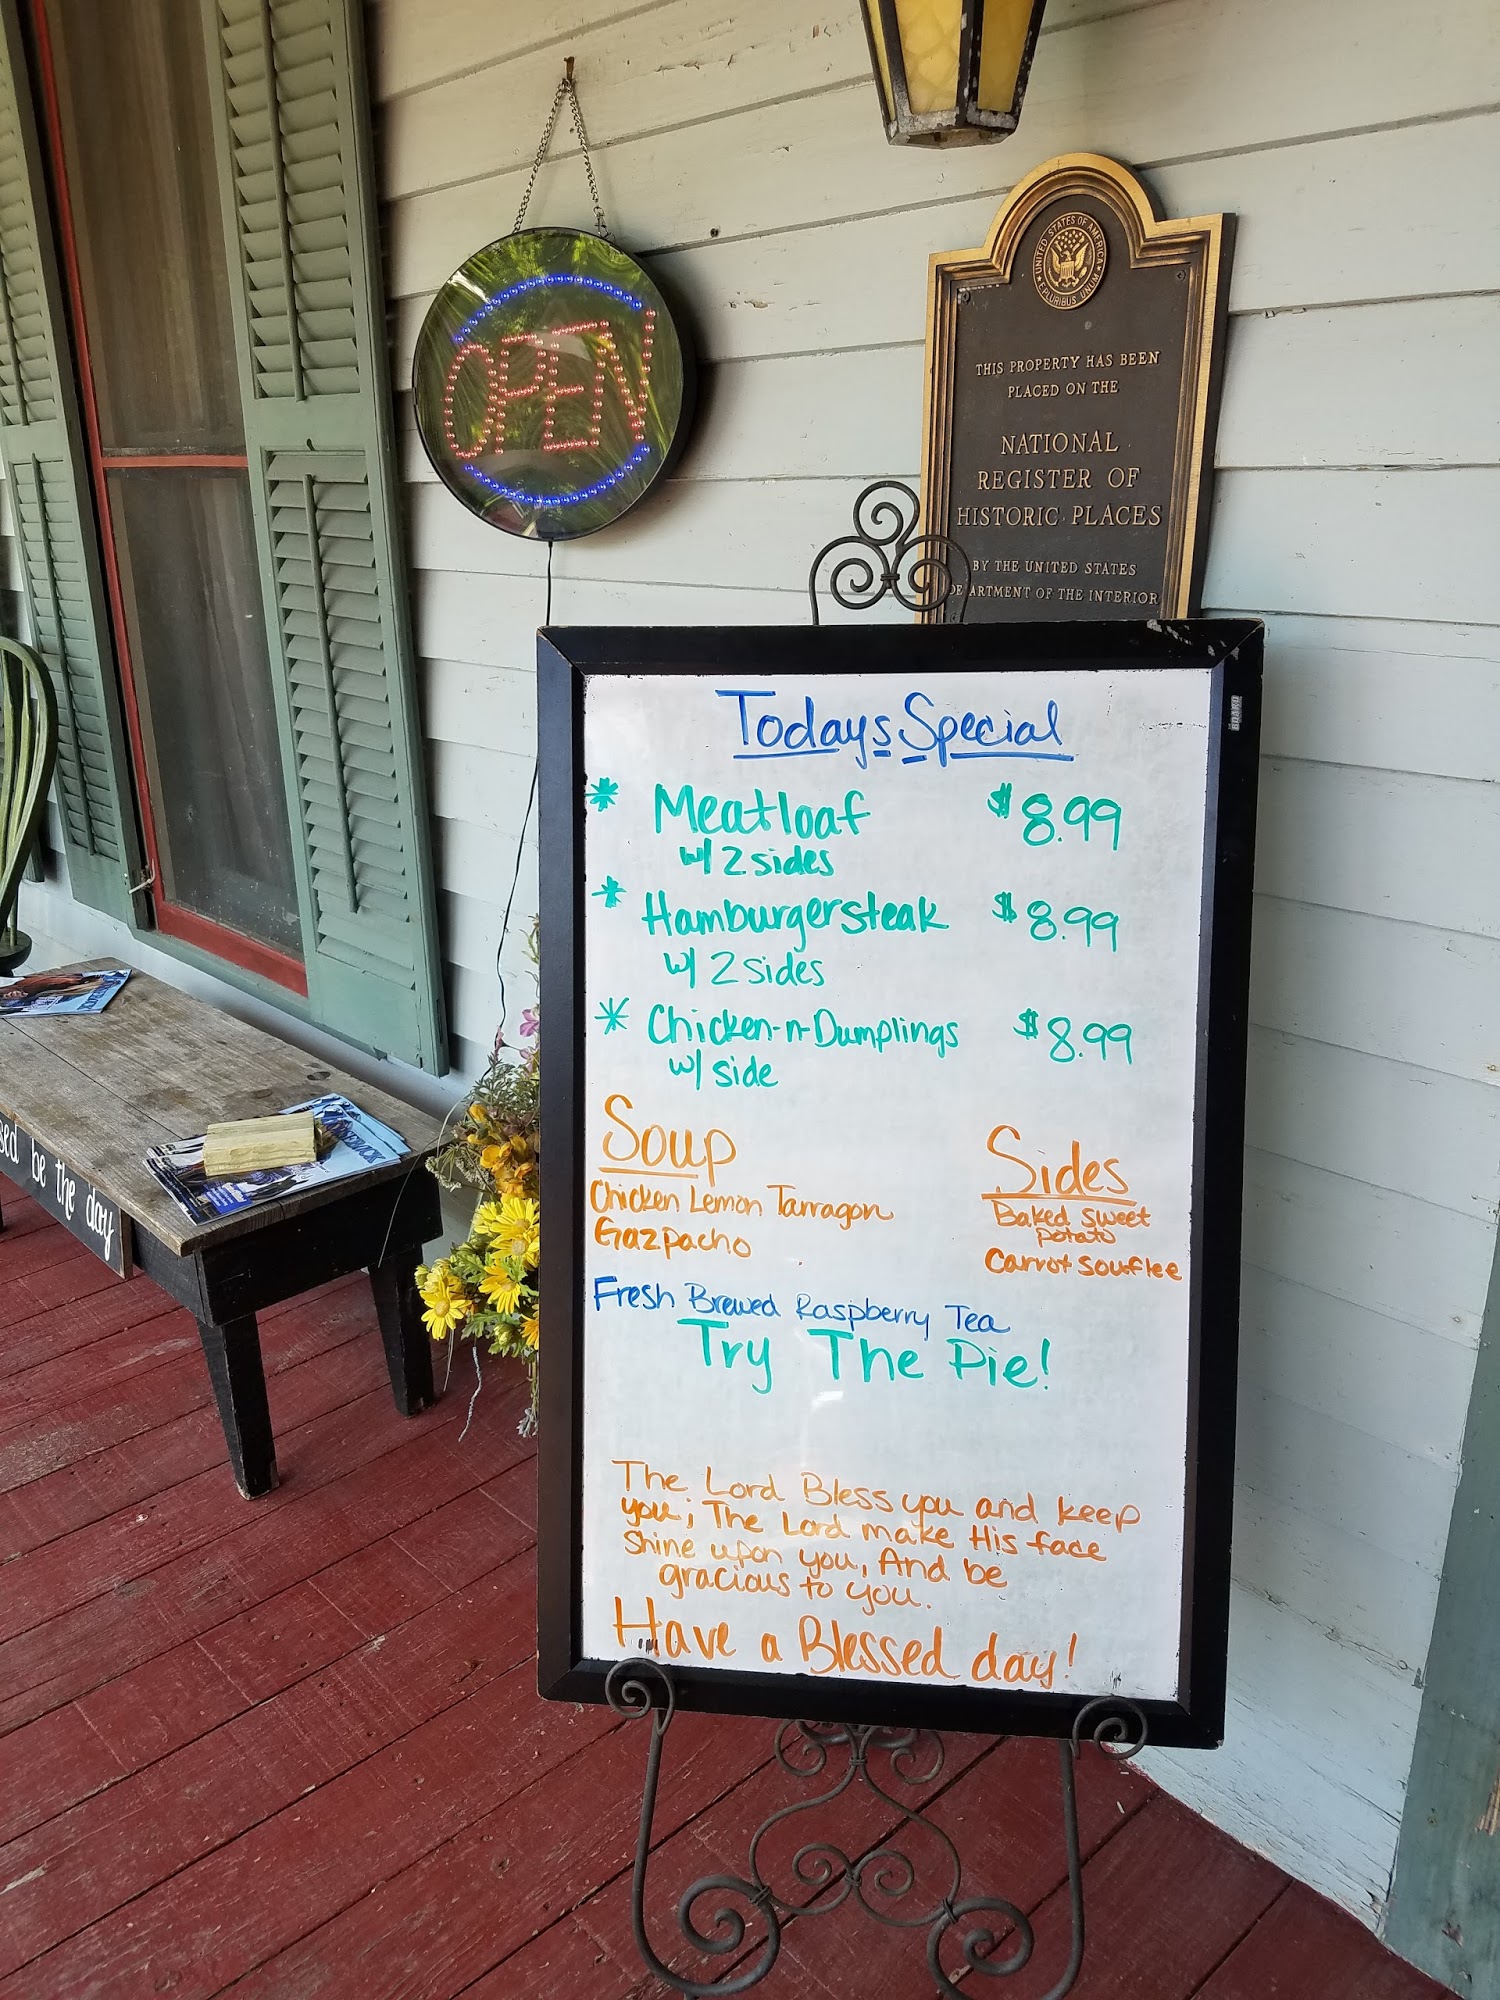 OPEN
UNITED STATES OF AMERICA
E PLURIBUS UNUM
THIS PROPERTY HAS BEEN
PLACED ON THE
NATIONAL
REGISTER OF
HISTORIC PLACES
BY THE UNITED STATES
DEPARTMENT OF THE INTERIOR
Todays Special
* Meatloaf $8.99
w/ 2 sides
* Hamburgersteak $8.99
w/ 2 sides
* Chicken-n-Dumplings $8.99
w/ side
Soup
Chicken Lemon Tarragon
Gazpacho
Sides
Baked sweet
potato
Carrot souflee
Fresh Brewed Raspberry Tea
Try The Pie!
The Lord Bless you and keep
you; The Lord make His face
shine upon you, And be
gracious to you.
Have a Blessed day!
be the day